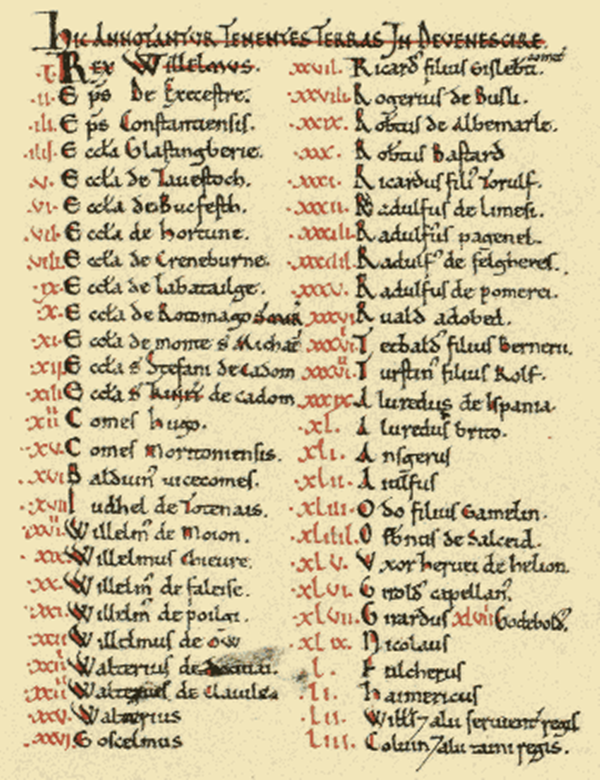 HIC ANNOTANTUR TENENTES TERRAS IN DEVENESCIRE.
.I. Rex Willelmus.
.II. Eps de Execestre.
.III. Eps Constantiensis.
.IIII. Eccla Glastingberie.
.V. Eccla de Tavestoch.
.VI. Eccla de Bucfesth.
.VII. Eccla de hortune.
.VIII. Eccla de Creneburne.
.IX. Eccla de labatailge.
.X. Eccla de Rotomago
.XI. Eccla de monte s Michael
.XII. Eccla s Stefani de Cadom
.XIII. Eccla s de cadom
.XIIII. Comes hugo.
.XV. Comes moritoniensis.
.XVI. Balduin vicecomes.
.XVII. Iudhel de Totenais.
.XVIII. Willelm de moion.
.XIX. Willelmus Chievre.
.XX. Willelm de faleise.
.XXI. Willelm de poilgi.
.XXII. Willelmus de ow
.XXIII. Walterius de
.XXIIII. Walterius de Clavile.
.XXV. Walterius
.XXVI. Goscelmus
.XXVII. Ricard filius Gislebti. comet
.XXVIII. Rogerius de Busli.
.XXIX. Robtus de Albemarle.
.XXX. Robtus Bastard
.XXXI. Ricardus fili Torulf.
.XXXII. Radulfus de limesi.
.XXXIII. Radulfus pagenel.
.XXXIIII. Radulf de felgheres.
.XXXV. Radulfus de pomerei.
.XXXVI. Ruald adobed.
.XXXVII. Tetbald filius Bernerii.
.XXXVIII. Turstin filius Rolf.
.XXXIX. Aluredus de Ispania.
.XL. Aluredus brito.
.XLI. Ansgerus
.XLII. Aiulfus
.XLIII. Odo filius Gamelin.
.XLIIII. Osbnus de Salceid.
.XLV. Uxor hervei de helion.
.XLVI. Girold capellan.
.XLVII. Girardus XLVIII Godebold.
.XLIX. Nicolaus
.L. Fulcherus
.LI. haimericus
.LII. Will 7 alii servient regis
.LIII. Coluin 7 alii taini regis.